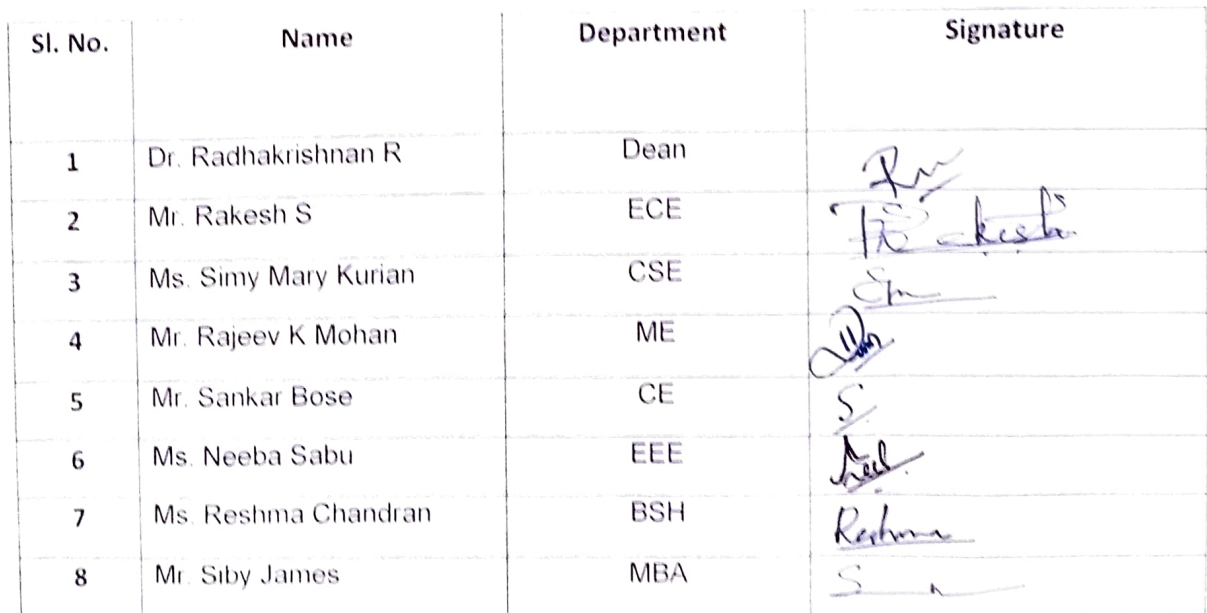 Sl. No. Name Department Signature
1 Dr. Radhakrishnan R Dean
2 Mr. Rakesh S ECE
3 Ms. Simy Mary Kurian CSE
4 Mr. Rajeev K Mohan ME
5 Mr. Sankar Bose CE S
6 Ms. Neeba Sabu EEE
7 Ms. Reshma Chandran BSH Reshma
8 Mr. Siby James MBA